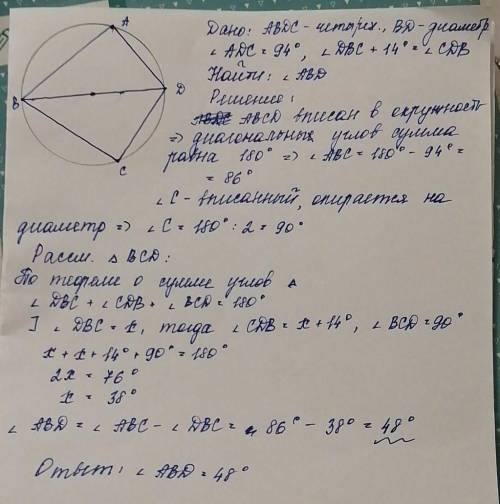 A
B
D
C
Дано: ABDC - четырех., BD - диаметр
∠ADC = 94°, ∠DBC + 14° = ∠CDB
Найти: ∠ABD
Решение:
ABCD вписан в окружность
=> диагональных углов сумма
равна 180° => ∠ABC = 180° - 94° =
= 86°
∠C - вписанный, опирается на
диаметр => ∠C = 180° : 2 = 90°
Рассм. △BCD:
По теореме о сумме углов △
∠DBC + ∠CDB + ∠BCD = 180°
] ∠DBC = x, тогда ∠CDB = x + 14°, ∠BCD = 90°
x + x + 14° + 90° = 180°
2x = 76°
x = 38°
∠ABD = ∠ABC - ∠DBC = 86° - 38° = 48°
Ответ: ∠ABD = 48°